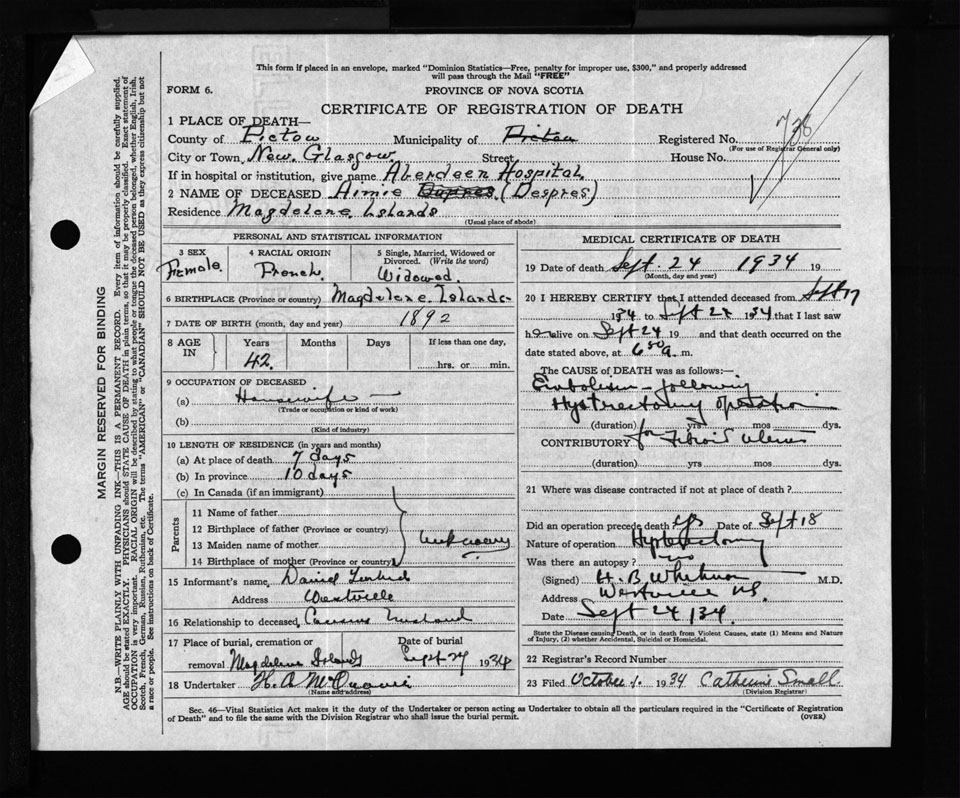 This form if placed in an envelope, marked "Dominion Statistics—Free, penalty for improper use, $300," and properly addressed
will pass through the Mail "FREE"
FORM 6.
PROVINCE OF NOVA SCOTIA
CERTIFICATE OF REGISTRATION OF DEATH
1 PLACE OF DEATH—
County of Pictou Municipality of Pictou Registered No. 738
(For use of Registrar General only)
City or Town New Glasgow Street House No.
If in hospital or institution, give name Aberdeen Hospital.
2 NAME OF DECEASED Aimie Dupres (Despres)
Residence Magdelene Islands
(Usual place of abode)
PERSONAL AND STATISTICAL INFORMATION
3 SEX
Female.
4 RACIAL ORIGIN
French.
5 Single, Married, Widowed or
Divorced. (Write the word)
Widowed.
6 BIRTHPLACE (Province or country) Magdelene Islands
7 DATE OF BIRTH (month, day and year) 1892
8 AGE
IN
Years
42.
Months
Days
If less than one day,
hrs. or min.
9 OCCUPATION OF DECEASED
(a) Housewife
(Trade or occupation or kind of work)
(b)
(Kind of industry)
10 LENGTH OF RESIDENCE (in years and months)
(a) At place of death 7 days
(b) In province 10 days
(c) In Canada (if an immigrant)
Parents
11 Name of father
12 Birthplace of father (Province or country)
13 Maiden name of mother
14 Birthplace of mother (Province or country)
unknown
15 Informant's name Daniel
Address Westville
16 Relationship to deceased Cousins husband
17 Place of burial, cremation or
removal Magdelene Islands
Date of burial
Sept 24 1934
18 Undertaker H. A. McQuarrie
(Name and address)
MEDICAL CERTIFICATE OF DEATH
19 Date of death Sept. 24 1934 19
(Month, day and year)
20 I HEREBY CERTIFY that I attended deceased from Sept 17
1934 to Sept 24 1934 that I last saw
her alive on Sept 24 19 and that death occurred on
the date stated above, at 6 50 a. m.
The CAUSE of DEATH was as follows:—
Embolism following
Hysterectomy operation
(duration) yrs mos dys.
CONTRIBUTORY for Fibroid Uterus
(duration) yrs mos dys.
21 Where was disease contracted if not at place of death?
Did an operation precede death yes Date of Sept 18
Nature of operation Hysterectomy
Was there an autopsy?
(Signed) H. B. Whitman M.D.
Address Westville N.S.
Date Sept 24/34.
State the Disease causing Death, or in death from Violent Causes, state (1) Means and Nature
of Injury, (2) whether Accidental, Suicidal or Homicidal.
22 Registrar's Record Number
23 Filed October 1. 1934 Catherine Small
(Division Registrar)
Sec. 46—Vital Statistics Act makes it the duty of the Undertaker or person acting as Undertaker to obtain all the particulars required in the "Certificate of Registration
of Death" and to file the same with the Division Registrar who shall issue the burial permit.
(OVER)
MARGIN RESERVED FOR BINDING
N.B.—WRITE PLAINLY WITH UNFADING INK—THIS IS A PERMANENT RECORD. Every item of information should be carefully supplied.
AGE should be stated EXACTLY. PHYSICIANS should STATE CAUSE OF DEATH in plain terms, so that it may be properly classified. Exact statement of
OCCUPATION is very important. RACIAL ORIGIN will be described by stating to what people or tongue the deceased person belonged, whether English, Irish,
Scotch, French, German, Russian, Ruthenian, etc. The terms "AMERICAN" or "CANADIAN" SHOULD NOT BE USED as they express citizenship but not
a race or people. See instructions on back of Certificate.